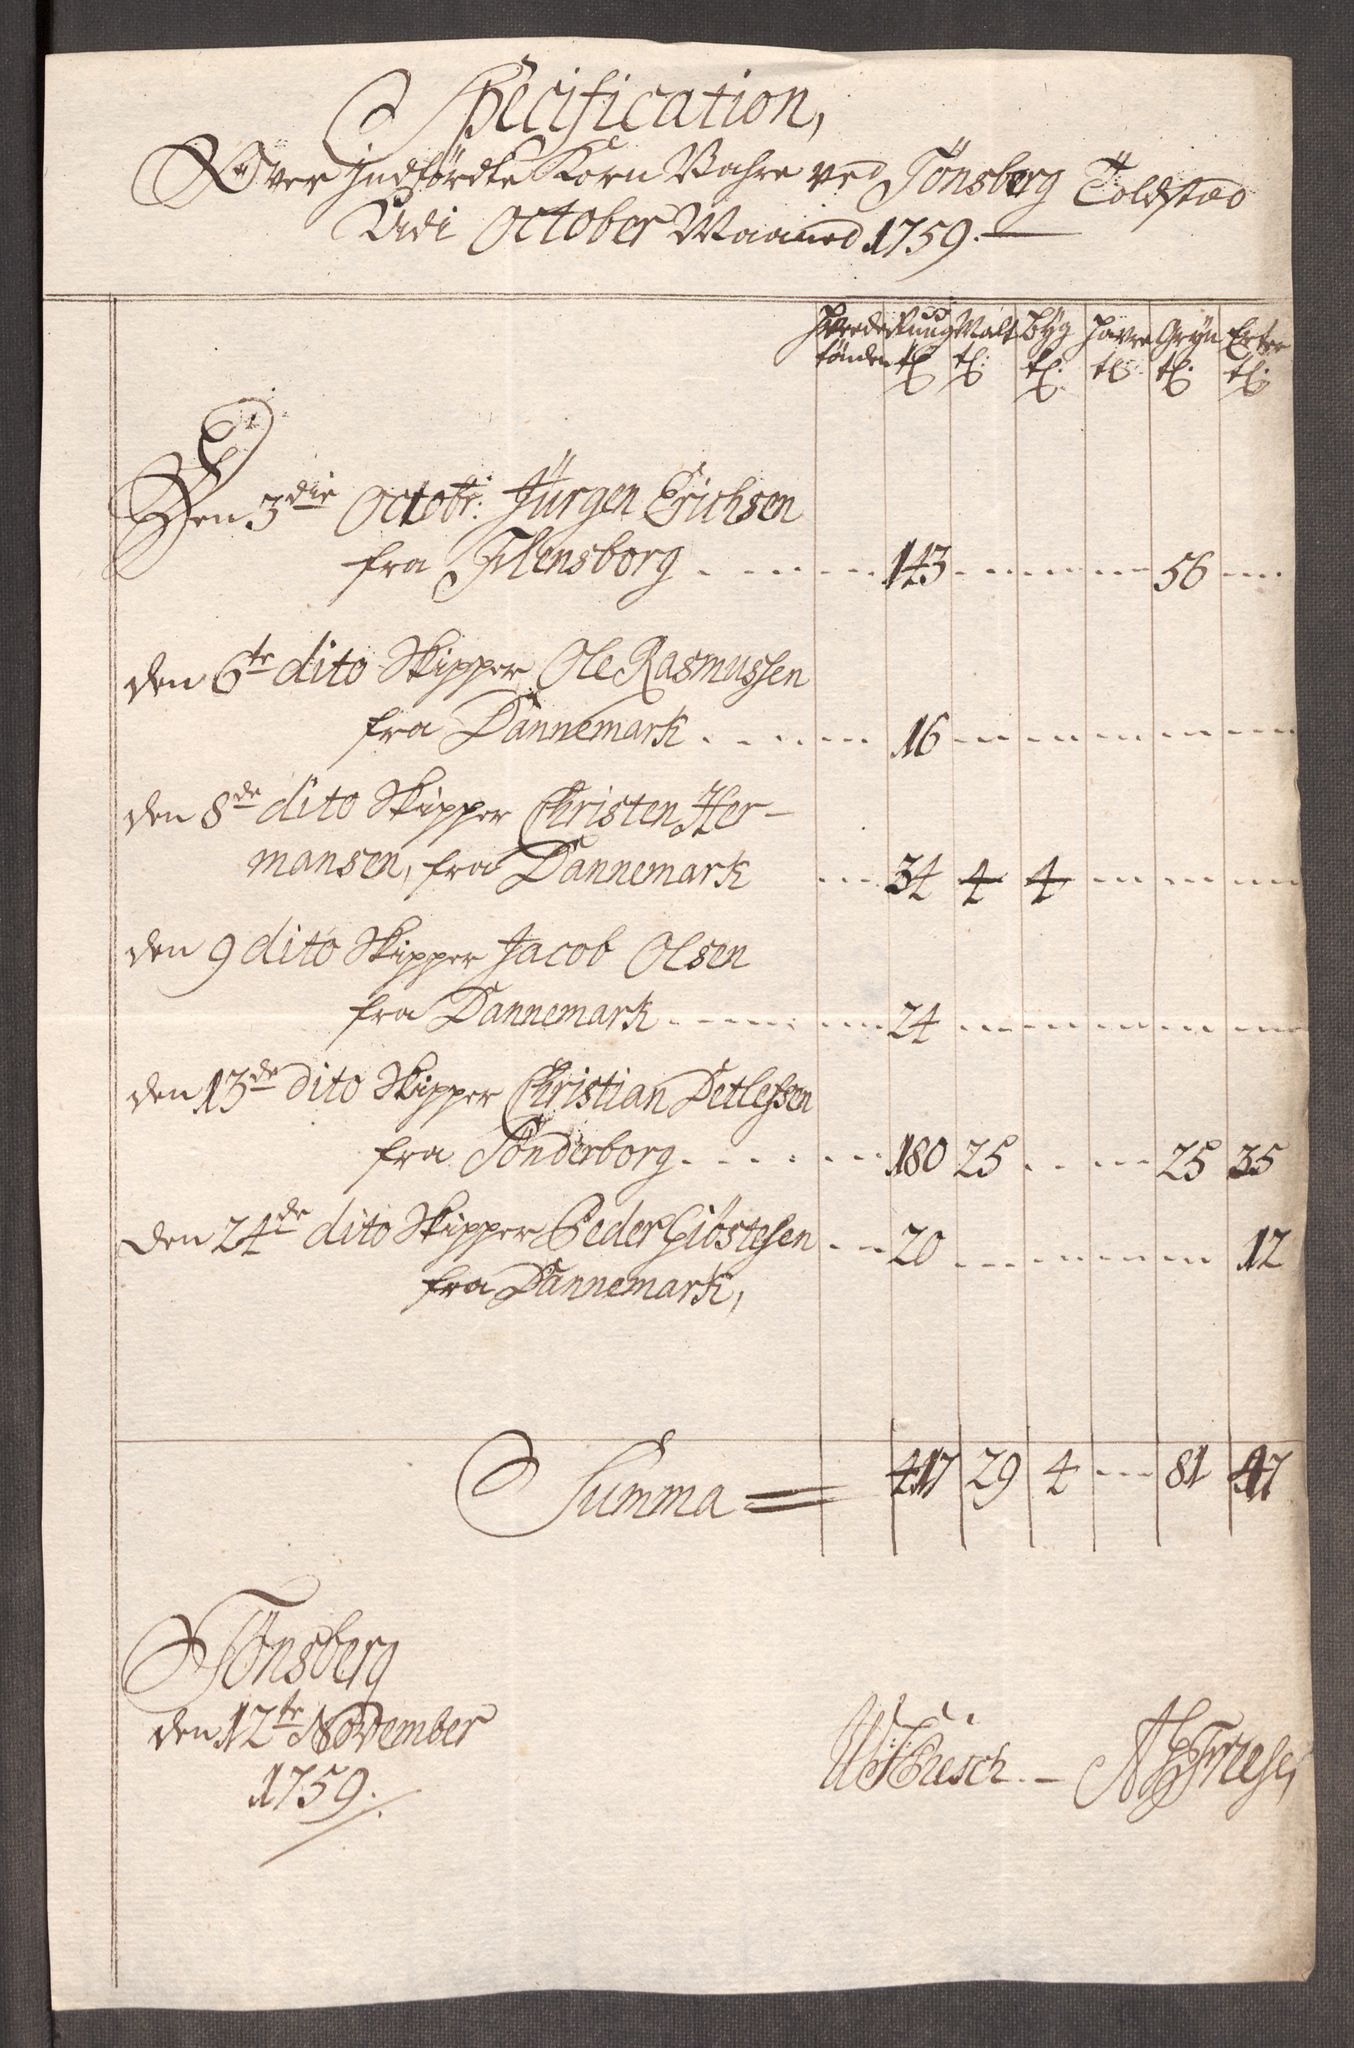 Specification,
Over Indførdte Korn Vahre ved Tönsberg Toldstæd
Udi October Maaned 1759.
Hvede Rug Malt Byg Havre Gryn Erter
tønder tl. tl. tl. tl. tl. tl.
Den 3die Octobr: Jürgen Erichsen
fra Flensborg 143 56
den 6te dito Skipper Ole Rasmussen
fra Dannemark 16
den 8de dito Skipper Christen Her-
mansen, fra Dannemark 34 4 4
den 9 dito Skipper Jacob Olsen
fra Dannemark 24
den 13de dito Skipper Christian Detlefsen
fra Sönderborg 180 25 25 35
den 24de dito Skipper Peder Giöstesen 20 12
fra Dannemark,
Summa = 417 29 4 81 47
Tönsberg
den 12te November
1759.